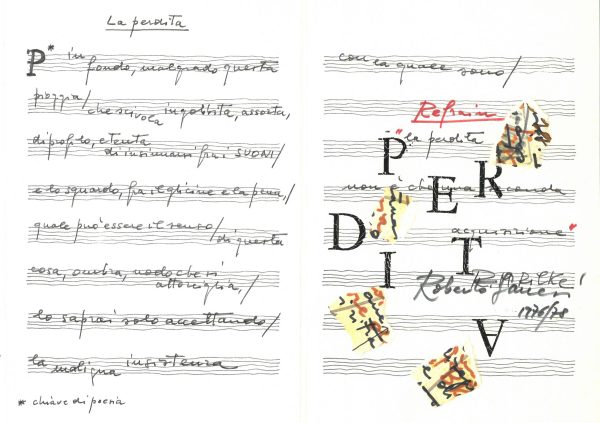 La perdita
P* in fondo, malgrado questa
pioggia / che scivola ingobbita, assorta,
di profilo, e tenta di insinuarsi fra i SUONI /
e lo sguardo, fra il glicine e la
quale può essere il senso / di questa
cosa, ombra, nodo che si attorciglia, /
lo saprai solo accettando /
la maligna insistenza
* chiave di poesia
con la quale sono /
Refrain
"la perdita
non è che una seconda
acquisizione"
RILKE
Roberto Sanesi
1976/78
P
E
R
D
I
T
A